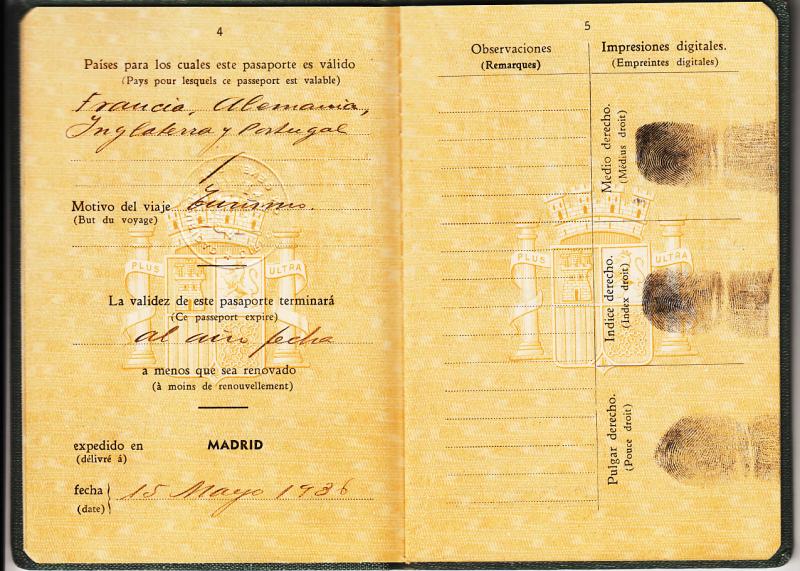 4
Países para los cuales este pasaporte es válido
(Pays pour lesquels ce passeport est valable)
Francia, Alemania,
Inglaterra y Portugal
Motivo del viaje Turismo.
(But du voyage)
PLUS ULTRA
La validez de este pasaporte terminará
(Ce passeport expire)
al año fecha
a menos que sea renovado
(à moins de renouvellement)
expedido en MADRID
(délivré á)
fecha 15 Mayo 1936
(date)
5
Observaciones
(Remarques)
Impresiones digitales.
(Empreintes digitales)
Medio derecho.
(Médius droit)
PLUS ULTRA
Indice derecho.
(Index droit)
Pulgar derecho.
(Pouce droit)